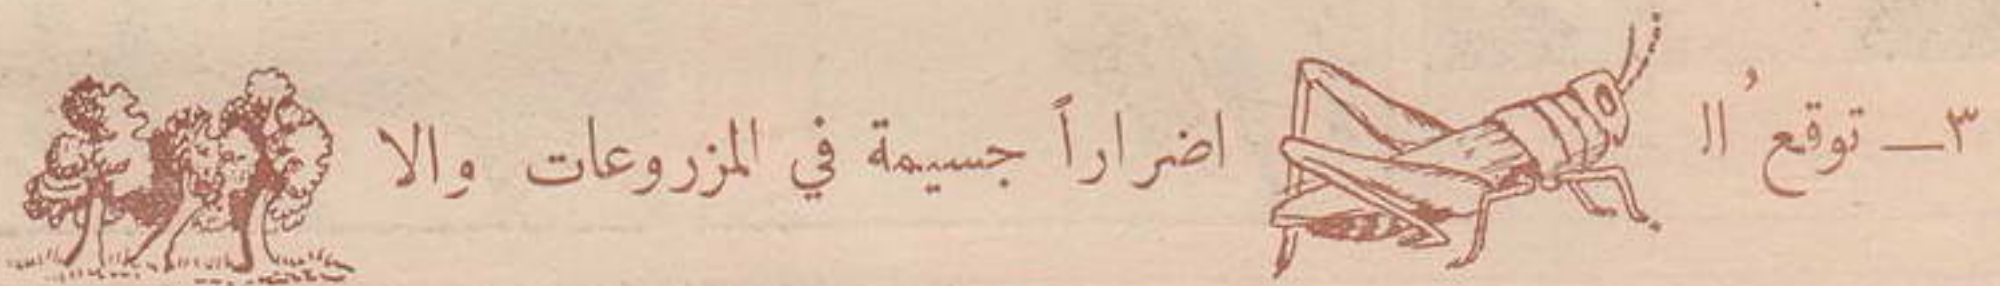 ٣ــ توقع ُ الـ اضراراً جسيمة في المزروعات والا